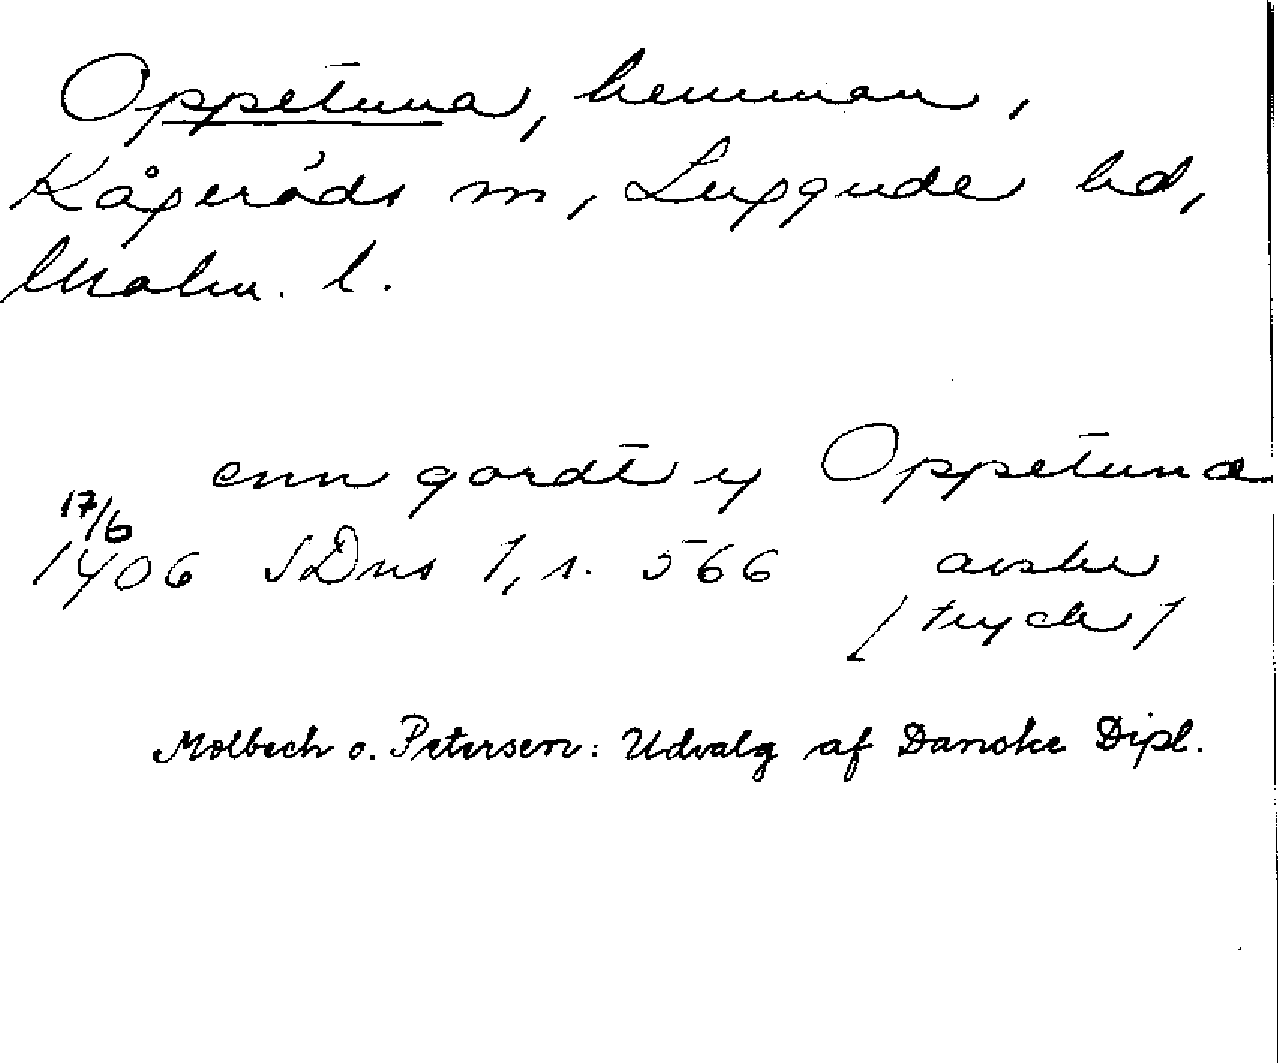 Oppetuna, hemman,
Kågeröds sn, Luggude hd,
Malm. l.
enn gardt y Oppetuna
17/6
1406 SDns 1, s. 566 avskr
(tryck)
Molbech o. Petersen: Udvalg af Danske Dipl.